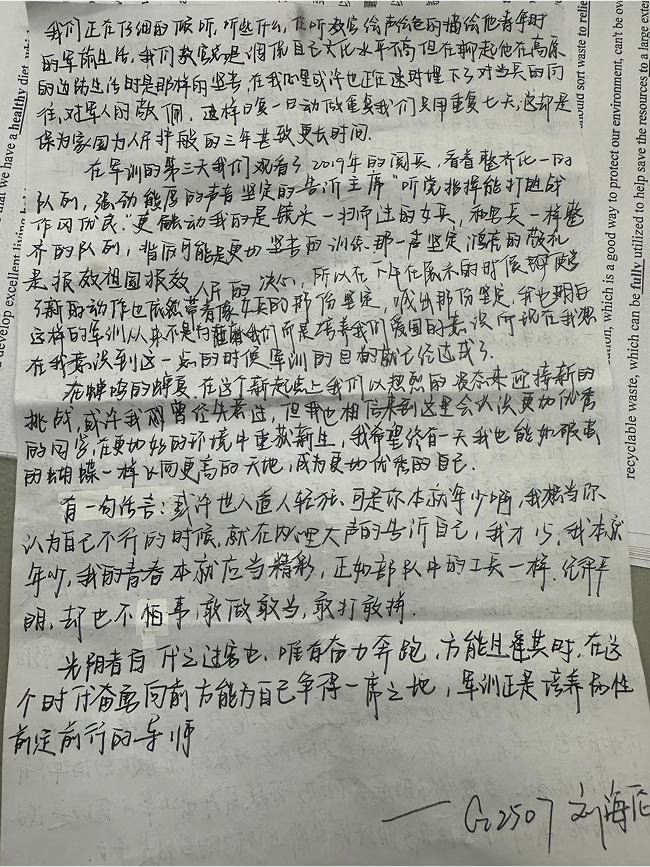 我们正在仔细的倾听,听些什么,在听教官绘声绘色的描绘他青年时
的军旅生活,我们教官总是调侃自己文化水平不高但在聊起他在高原
的边防生活时是那样的坚苦,在我心里或许也正在这时埋下了对当兵的向
往,对军人的敬佩。这样日复一日动作重复我们只用重复七天,但却是
保为家国为人民护航的三年甚致更长时间.
在军训的第三天我们观看了2019年的阅兵,看着整齐化一的
队列,强劲能厚的声音坚定的告诉主席“听党指挥能打胜战
作风优良.”更触动我的是镜头一扫而过的女兵,和男兵一样整
齐的队列,背后可能是更加坚苦的训练那一声坚定鸿亮的敬礼
是报效祖国报效人民的决心,所以在下午在展示的时候
新的动作也依然带着像女兵的那份坚定,喊出那份坚定,我也明白
这样的军训从来不是为我们而是培养我们爱国的意识所现在我想
在我意识到这一点的时候军训的目的就已经达成了.
在蝉鸣的盛夏,在这个新起点上我们以热烈的姿态来迎接新的
挑战,或许我们曾经失意过,但我也相信来到这里会认识更加优秀
的同学,在更加好的环境中重获新生,我希望终有一天我也能如破茧
的蝴蝶一样飞向更高的天地,成为更加优秀的自己.
有一句话言:或许世人道人轻狂,可是你本就年少啊,我想当你
认为自己不行的时候,就在内心里大声的告诉自己,我才15,我本就
年少,我的青春本就应当精彩,正如部队中的工兵一样.纪律严
明,却也不怕事,敢做敢当,敢打敢拼.
光阴者百代之过客也,唯有奋力奔跑,方能过其时,在这
个时代奋勇向前方能为自己争得一席之地,军训正是培养品性
前行的导师
——G2507 刘海
develop excellent living
that we have a healthy diet
should sort waste to
, which is a good way to protect our environment, can't be
recyclable waste, which can be fully utilized to help save the resources to a large